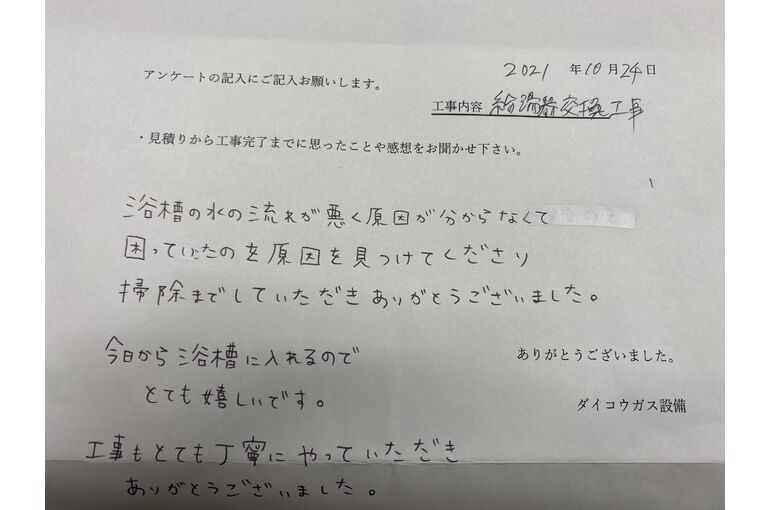 アンケートの記入にご記入お願いします。
2021 年 10 月 24 日
工事内容 給湯器交換工事
・見積りから工事完了までに思ったことや感想をお聞かせ下さい。
浴槽の水の流れが悪く原因が分からなくて
困っていたのを原因を見つけてくださり
掃除までしていただきありがとうございました。
今日から浴槽に入れるので
とても嬉しいです。
ありがとうございました。
ダイコウガス設備
工事もとても丁寧にやっていただき
ありがとうございました。